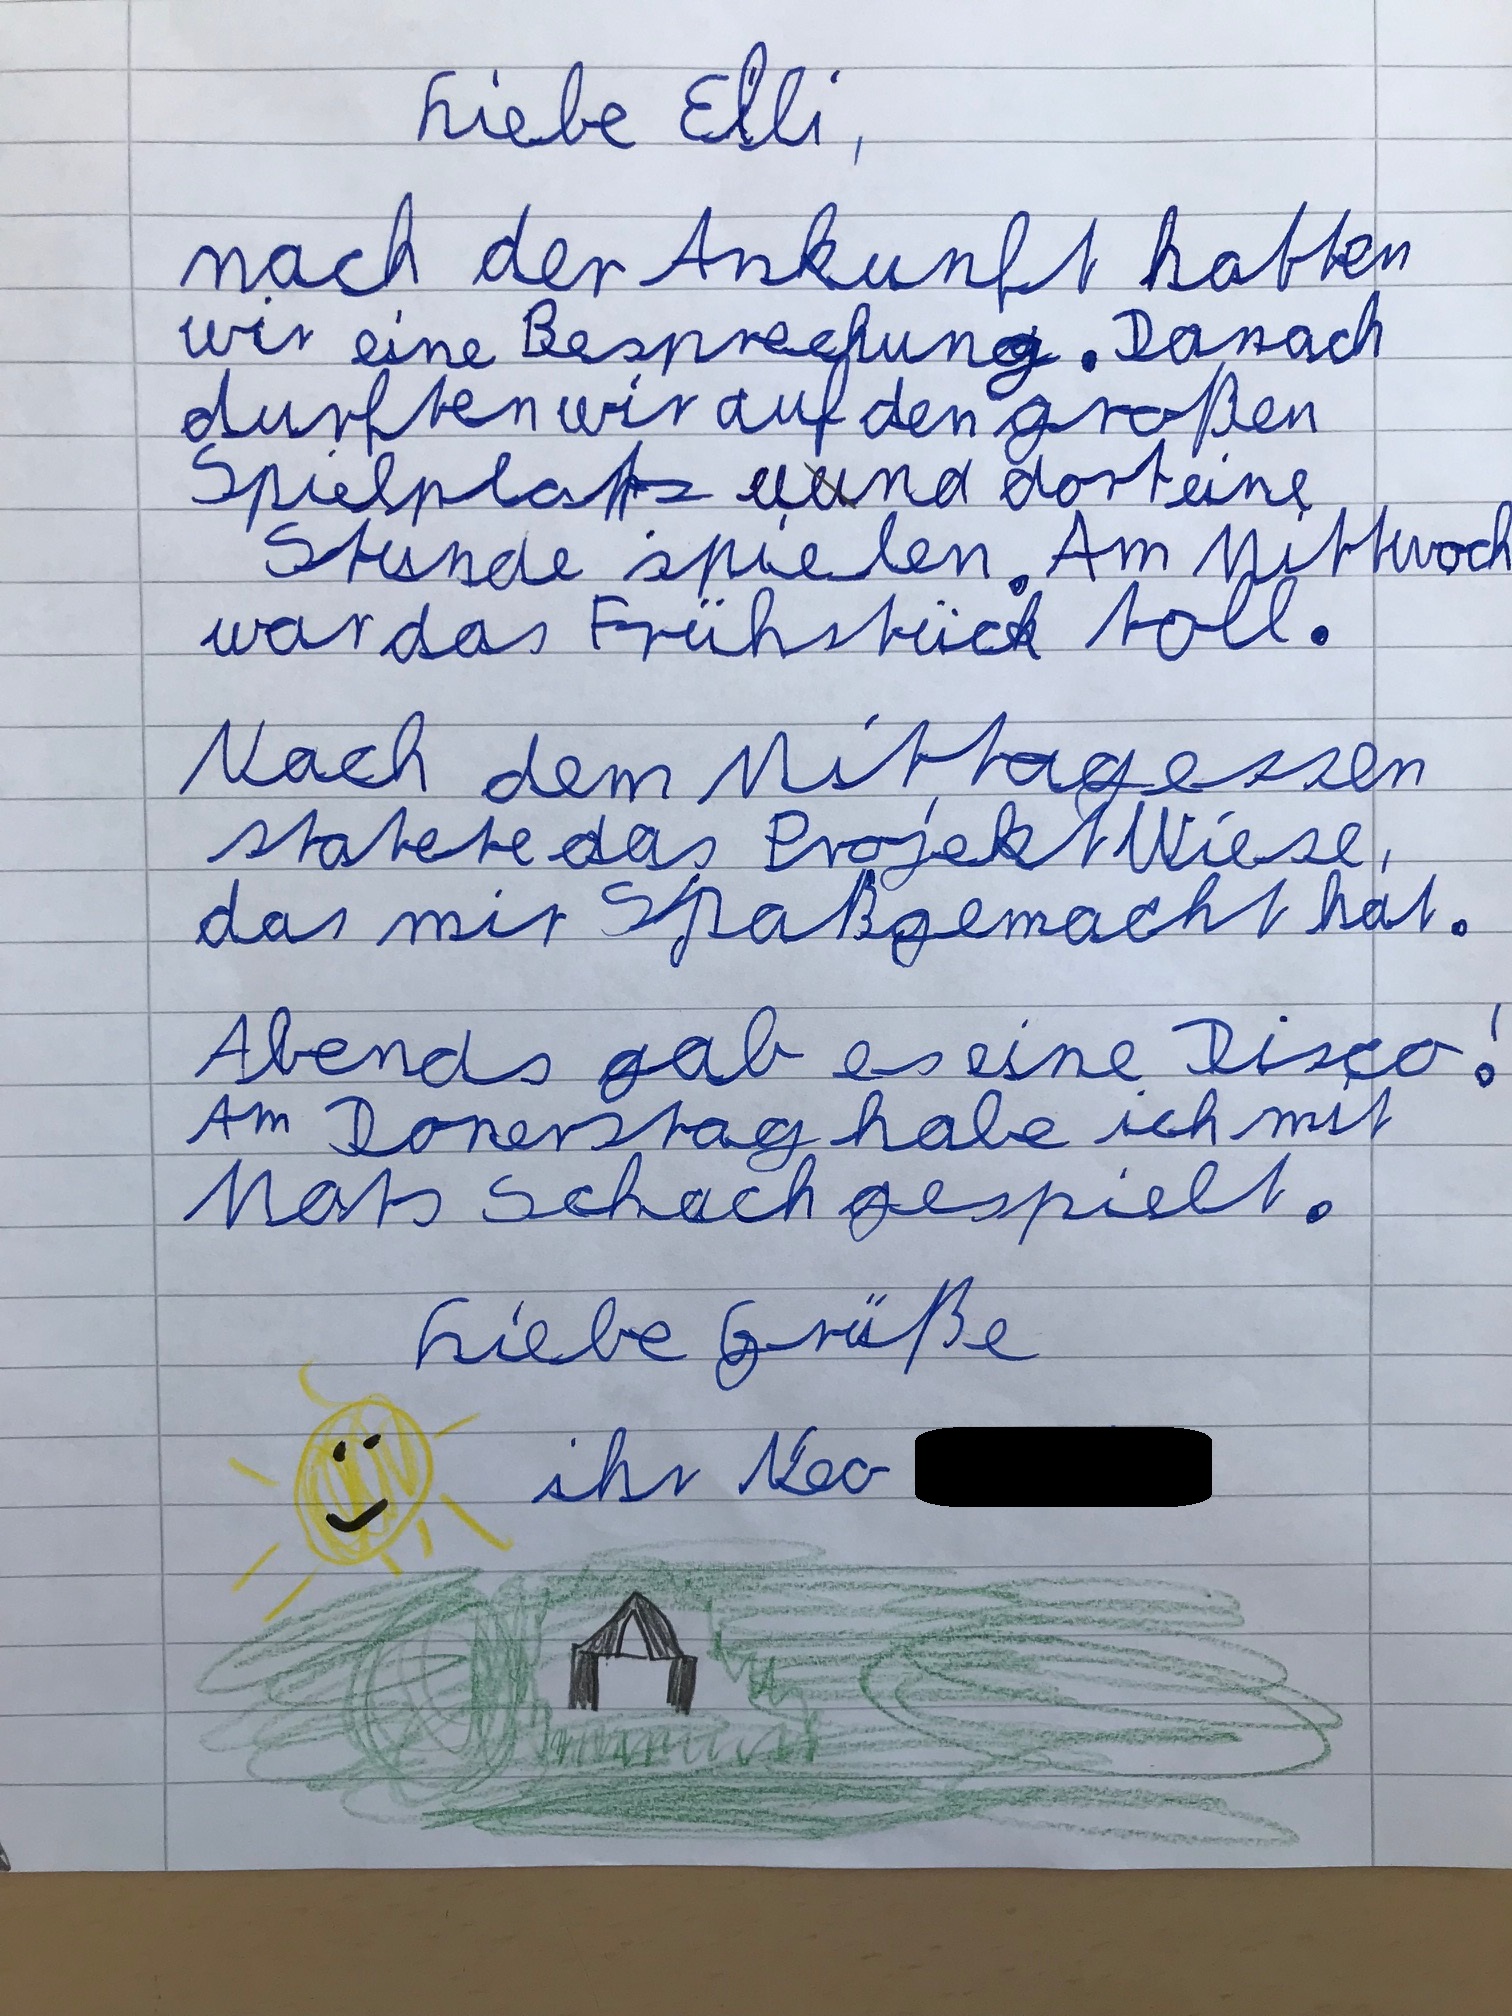 Liebe Elli,
nach der Ankunft hatten
wir eine Besprechung. Danach
durften wir auf den großen
Spielplatz und dort eine
Stunde spielen. Am Mittwoch
war das Frühstück toll.
Nach dem Mittagessen
statete das Projekt Wiese,
das mir Spaß gemacht hat.
Abends gab es eine Disco!
Am Donerstag habe ich mit
Mats Schach gespielt.
Liebe Grüße
ihr Neo